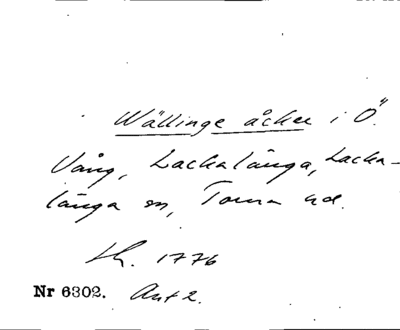 Wällinge åcker i Ö.
Vång, Lackalänga, Lacka-
länga sn, Torna hd.
Lh. 1776
Nr 6302. Akt 2.